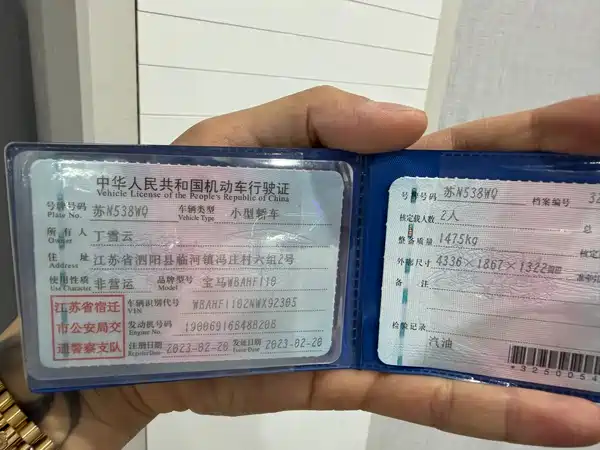 中华人民共和国机动车行驶证
Vehicle License of the People's Republic of China
号牌号码 Plate No. 苏N538WQ 车辆类型 Vehicle Type 小型轿车
所有人 Owner 丁雪云
住址 Address 江苏省泗阳县临河镇冯庄村六组2号
使用性质 Use Character 非营运 品牌型号 Model 宝马WBAHF110
江苏省宿迁
市公安局交
通警察支队
车辆识别代号 VIN WBAHF1102NWX92305
发动机号码 Engine No.
注册日期 Register Date 2023-02-28 发证日期 Issue Date 2023-02-28
号牌号码 苏N538WQ 档案编号 32
核定载人数 2人 总
整备质量 1475kg 核定
外廓尺寸 4336×1867×1322
备注
检验记录
汽油